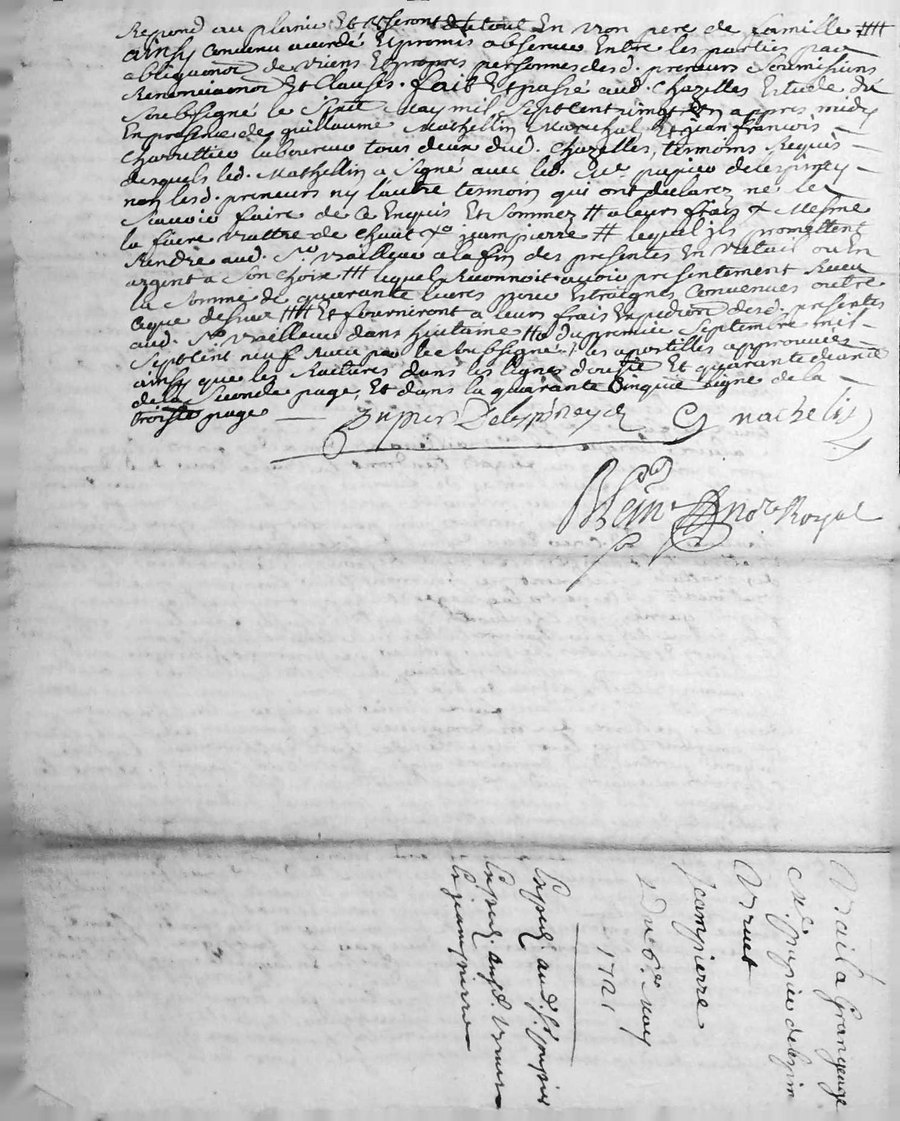 Repond au plainie Et Useront de tout En von pere de famille ##
ainsy convenu accordé Et promis observer Entre les parties par
obliga̅on̅ de viens Et propres personnes desd. preneurs soumisions
Renoncia̅on̅ Et Clauses. fait Et passé aud. Chazelles Estude du
Soubsigné le Sixie may mil Sept cent vingt Un appres midy
En presence de guillaume Mathellin Marechal Et jean francois
Charuttier laboureur tous deux dud. Chazelles, tesmoins Requis
desquels led. Mathellin a Signé avec led. Sr pupier delespiney
non lesd. preneurs ny l'autre tesmoin qui ont declarez ne le
Scavoir faire de ce Enquis Et Sommez # a leurs frais & Mesme
la faire vattre de jeanpierre # lequel jls promettent
Rendre aud. Sr. vailleur a la fin des presentes En Retail ou En
argent a Son choix ### lequel Reconnoit avoir presentement Receu
la Somme de quarante livres pour Estraignes Convenues outre
ce que dessus #### Et fourniront a leurs frais Expedi̅on̅ desd. presentes
aud. Sr. vailleur dans huitaine # du premier Septembre mil
Sept cent neuf Receu par le Soubsigné /. les apostilles approuvées
ainsy que les Ratures dans les lignes Et quarante
de la Seconde page, Et dans la quarante Cinquie ligne de la
troisie page
Pupier Delespineyd G machelin
not. Royal
Vail a Grangeage
Mr. pupier delespin
A Vruet
Jeampierre
Du 6e. may
1721
Expedi. aud. Sr. pupier
Expedi. auxd. Vruet
Et jeampierre